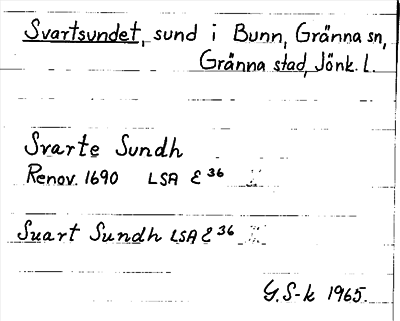 Svartsundet, sund i Bunn, Gränna sn,
Gränna stad, Jönk. l.
Svarte Sundh
Renov. 1690 LSA E 36
Suart Sundh LSA E 36
G. S-k 1965.